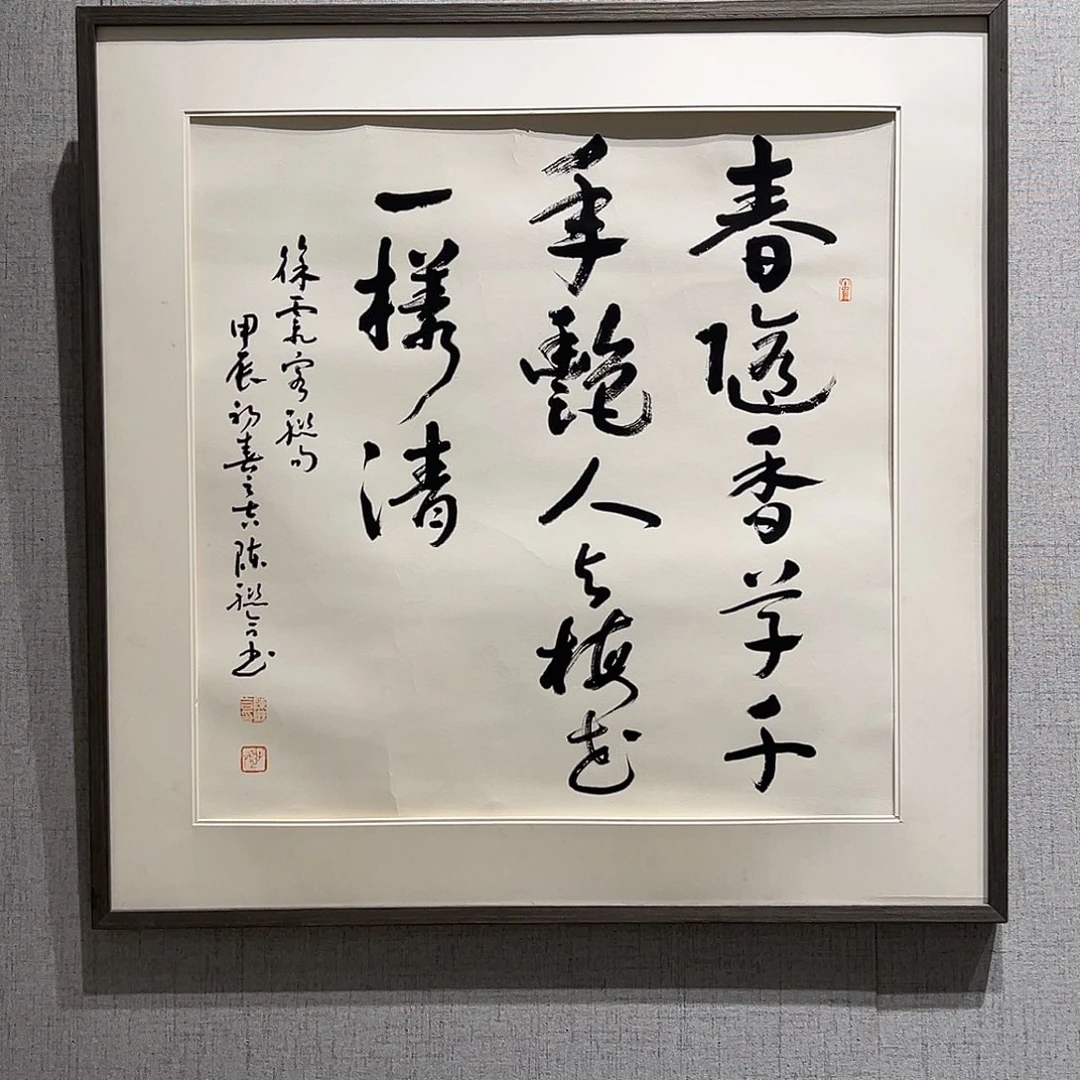 春随香草千
年艳人与梅花
一样清
徐霞客联句
甲辰初春之吉陈联合书